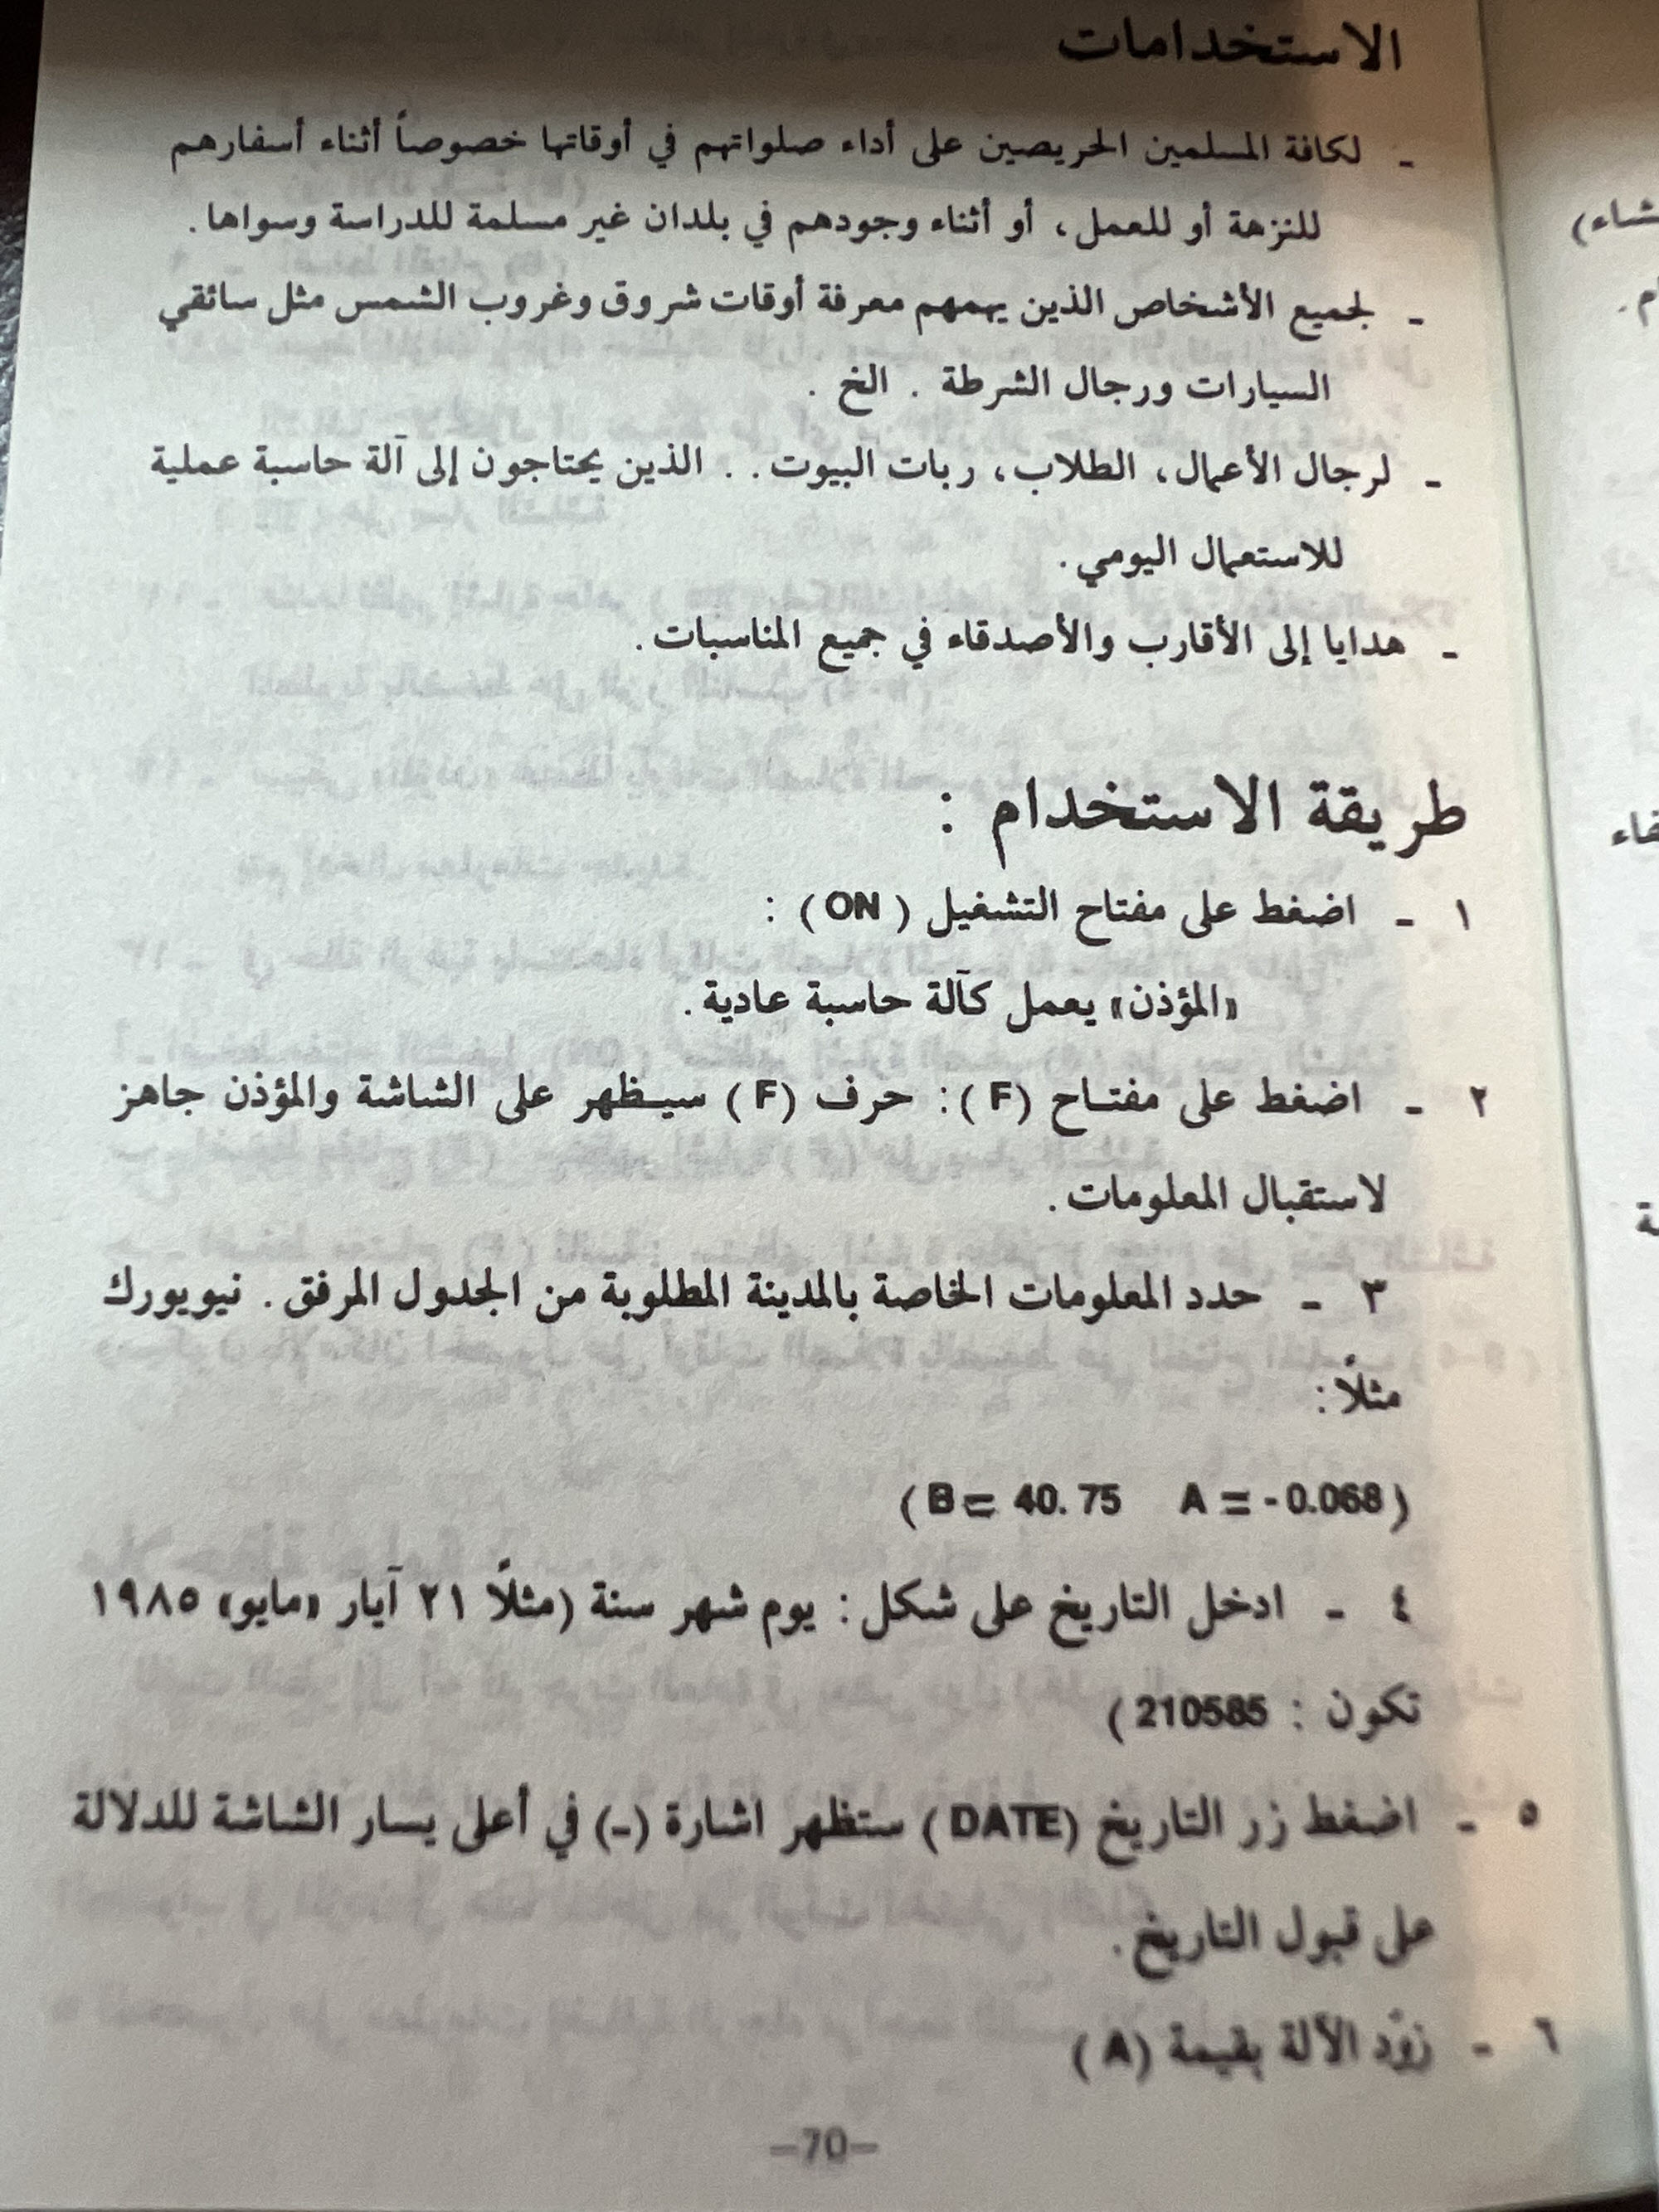 الاستخدامات
- لكافة المسلمين الحريصين على أداء صلواتهم في أوقاتها خصوصاً أثناء أسفارهم
للنزهة أو للعمل، أو أثناء وجودهم في بلدان غير مسلمة للدراسة وسواها.
- لجميع الأشخاص الذين يهمهم معرفة أوقات شروق وغروب الشمس مثل سائقي
السيارات ورجال الشرطة . الخ .
- لرجال الأعمال، الطلاب، ربات البيوت . . الذين يحتاجون إلى آلة حاسبة عملية
للاستعمال اليومي.
- هدايا إلى الأقارب والأصدقاء في جميع المناسبات.
طريقة الاستخدام :
١ - اضغط على مفتاح التشغيل (ON) :
«المؤذن» يعمل كآلة حاسبة عادية.
٢ - اضغط على مفتاح (F) : حرف (F) سيظهر على الشاشة والمؤذن جاهز
لاستقبال المعلومات.
٣ - حدد المعلومات الخاصة بالمدينة المطلوبة من الجدول المرفق. نيويورك
مثلاً:
(B = 40.75 A = -0.068)
٤ - ادخل التاريخ على شكل: يوم شهر سنة (مثلاً ٢١ آيار «مايو» ١٩٨٥
تكون : 210585)
٥ - اضغط زر التاريخ (DATE) ستظهر اشارة (-) في أعلى يسار الشاشة للدلالة
على قبول التاريخ.
٦ - زوّد الآلة بقيمة (A)
-70-
شاء)
ام.
فاء
ة